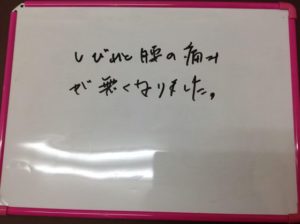 しびれと腰の痛み
が無くなりました。